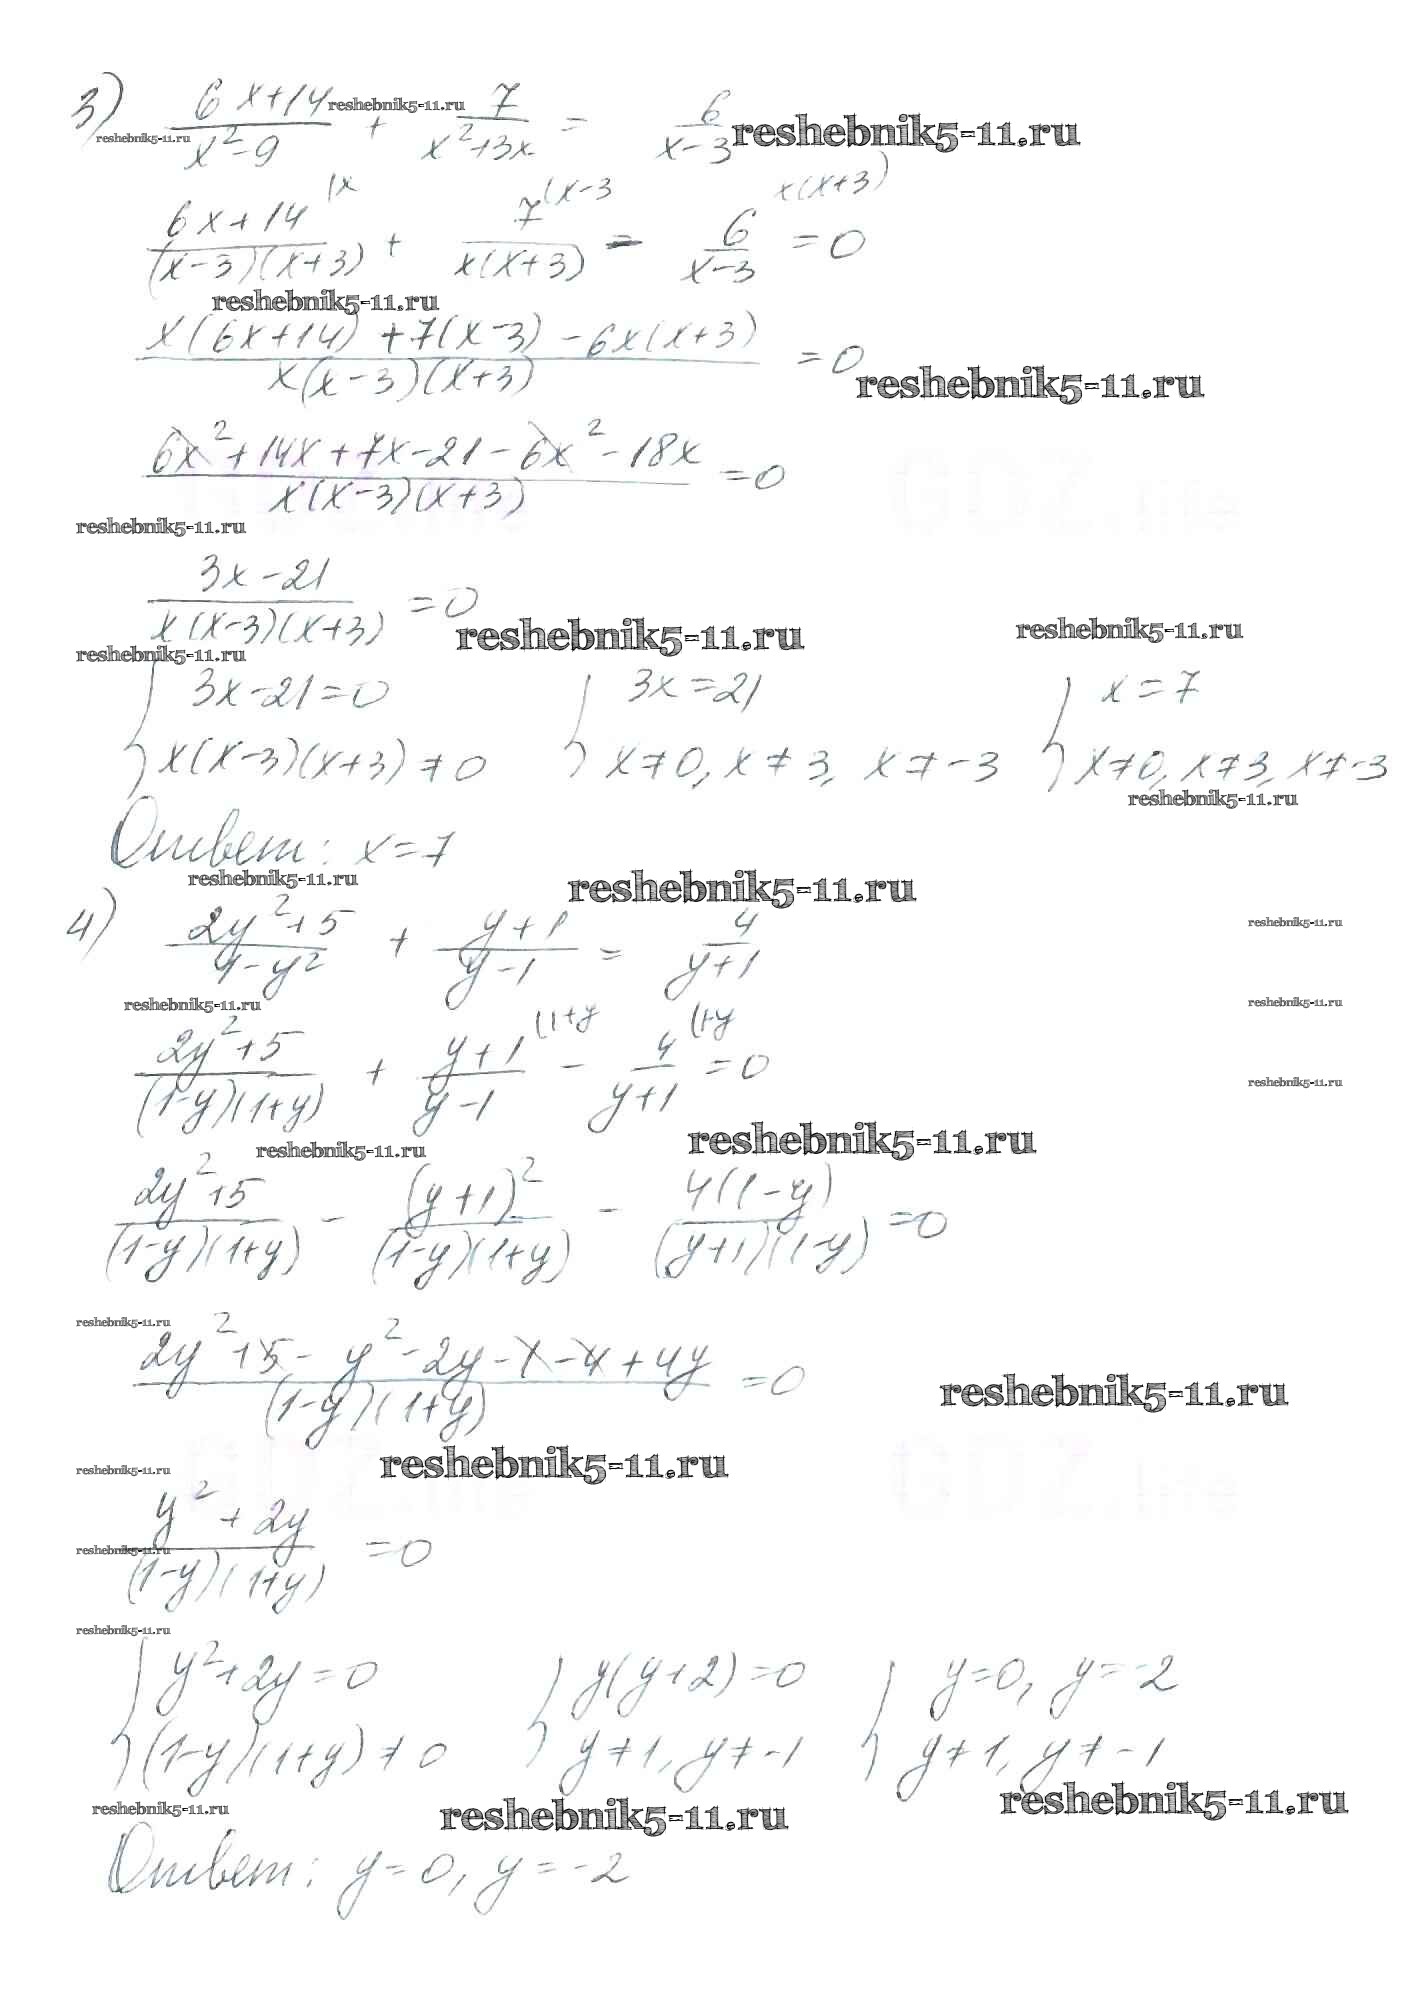 3) (6x+14)/(x²-9) + 7/(x²+3x) = 6/(x-3)
reshebnik5-11.ru
reshebnik5-11.ru
reshebnik5-11.ru
(6x+14)/((x-3)(x+3)) (x + 7/(x(x+3)) (x-3 - 6/(x-3) x(x+3) = 0
reshebnik5-11.ru
(x(6x+14)+7(x-3)-6x(x+3))/(x(x-3)(x+3)) = 0
reshebnik5-11.ru
(6x²+14x+7x-21-6x²-18x)/(x(x-3)(x+3)) = 0
GDZ.life
reshebnik5-11.ru
(3x-21)/(x(x-3)(x+3)) = 0
reshebnik5-11.ru reshebnik5-11.ru
reshebnik5-11.ru
{ 3x-21=0 { 3x=21 { x=7
x(x-3)(x+3)≠0 x≠0, x≠3, x≠-3 x≠0, x≠3, x≠-3
reshebnik5-11.ru
Ответ: x=7
reshebnik5-11.ru reshebnik5-11.ru
4) (2y²+5)/(1-y²) + (y+1)/(y-1) = 4/(y+1)
reshebnik5-11.ru
reshebnik5-11.ru reshebnik5-11.ru
(2y²+5)/((1-y)(1+y)) + (y+1)/(y-1) (1+y - 4/(y+1) (1-y = 0
reshebnik5-11.ru
reshebnik5-11.ru reshebnik5-11.ru
(2y²+5)/((1-y)(1+y)) - (y+1)²/((1-y)(1+y)) - 4(1-y)/((y+1)(1-y)) = 0
reshebnik5-11.ru
(2y²+5-y²-2y-1-4+4y)/((1-y)(1+y)) = 0
reshebnik5-11.ru
reshebnik5-11.ru reshebnik5-11.ru
GDZ.life GDZ.life
(y²+2y)/((1-y)(1+y)) = 0
reshebnik5-11.ru
reshebnik5-11.ru
{ y²+2y=0 { y(y+2)=0 { y=0, y=-2
(1-y)(1+y)≠0 y≠1, y≠-1 y≠1, y≠-1
reshebnik5-11.ru reshebnik5-11.ru reshebnik5-11.ru
Ответ: y=0, y=-2